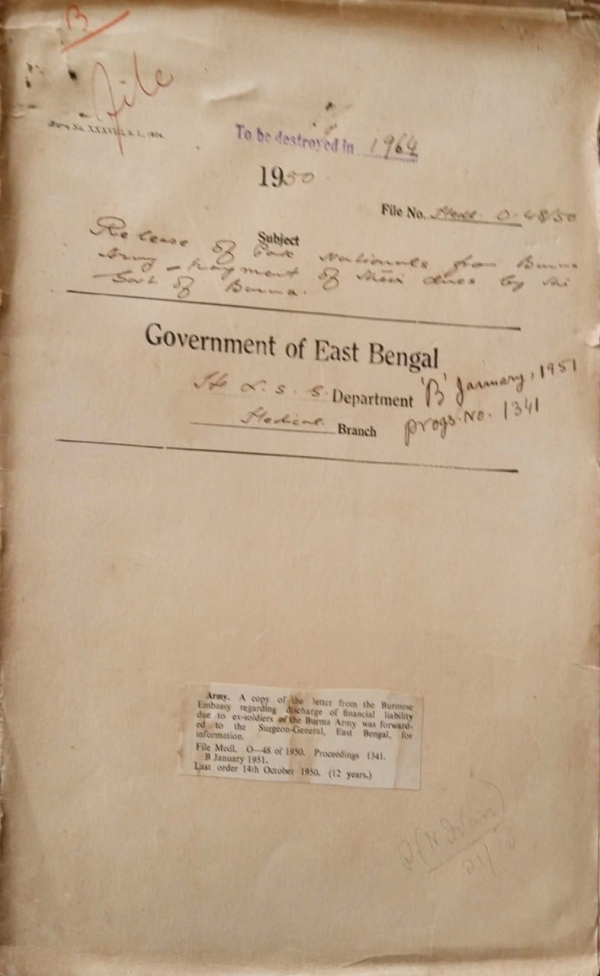 B
file
To be destroyed in 1964
1950
File No. Medl. O-48/50
Subject
Release of Pak Nationals from Burma
Army – payment of their dues by the
Govt of Burma.
Government of East Bengal
Department 'B' January, 1951
Medical Branch progs. No. 1341
Army. A copy of the letter from the Burmese
Embassy regarding discharge of financial liability
due to ex-soldiers of the Burma Army was forward-
ed to the Surgeon-General, East Bengal, for
information.
File Medl. O—48 of 1950. Proceedings 1341.
B January 1951.
Last order 14th October 1950. (12 years.)